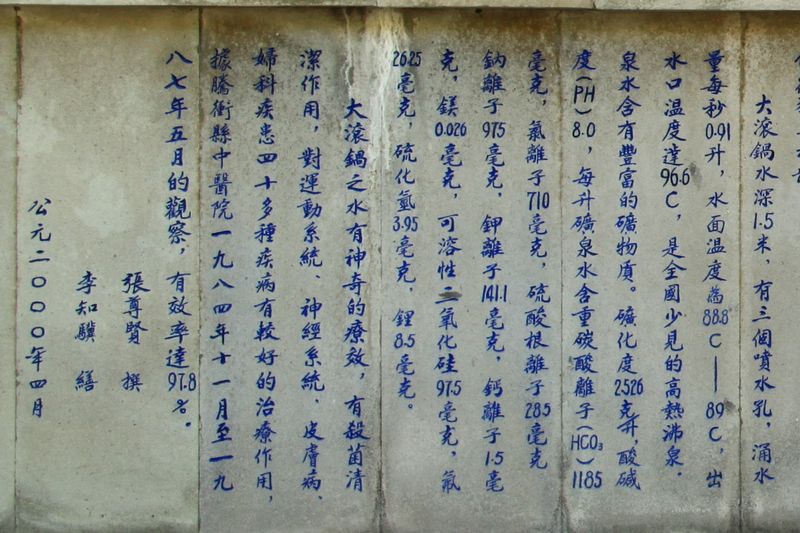 大滾鍋水深1.5米，有三個噴水孔，涌水
量每秒0.91升，水面溫度為88.8C——89C，出
水口溫度達96.6C，是全國少見的高熱沸泉．
泉水含有豐富的礦物質。礦化度2.526克升，酸碱
度(PH)8.0，每升礦泉水含重碳酸離子(HCO₃)1185
毫克，氯離子710毫克，硫酸根離子28.5毫克
鈉離子975毫克，鉀離子141.1毫克，鈣離子1.5毫
克，鎂0.026毫克，可溶性二氧化硅97.5毫克，氟
26.25毫克，硫化氫3.95毫克，鋰8.5毫克。
大滾鍋之水有神奇的療效，有殺菌清
潔作用，對運動系統、神經系統、皮膚病、
婦科疾患四十多種疾病有較好的治療作用，
據騰衝縣中醫院一九八四年十一月至一九
八七年五月的觀察，有效率達97.8%。
張尊賢 撰
李知驥 繕
公元二〇〇〇年四月